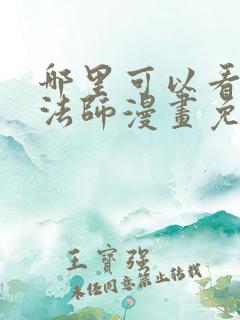 哪里可以看
法师漫畫免
王寳强
未经同意禁止转载